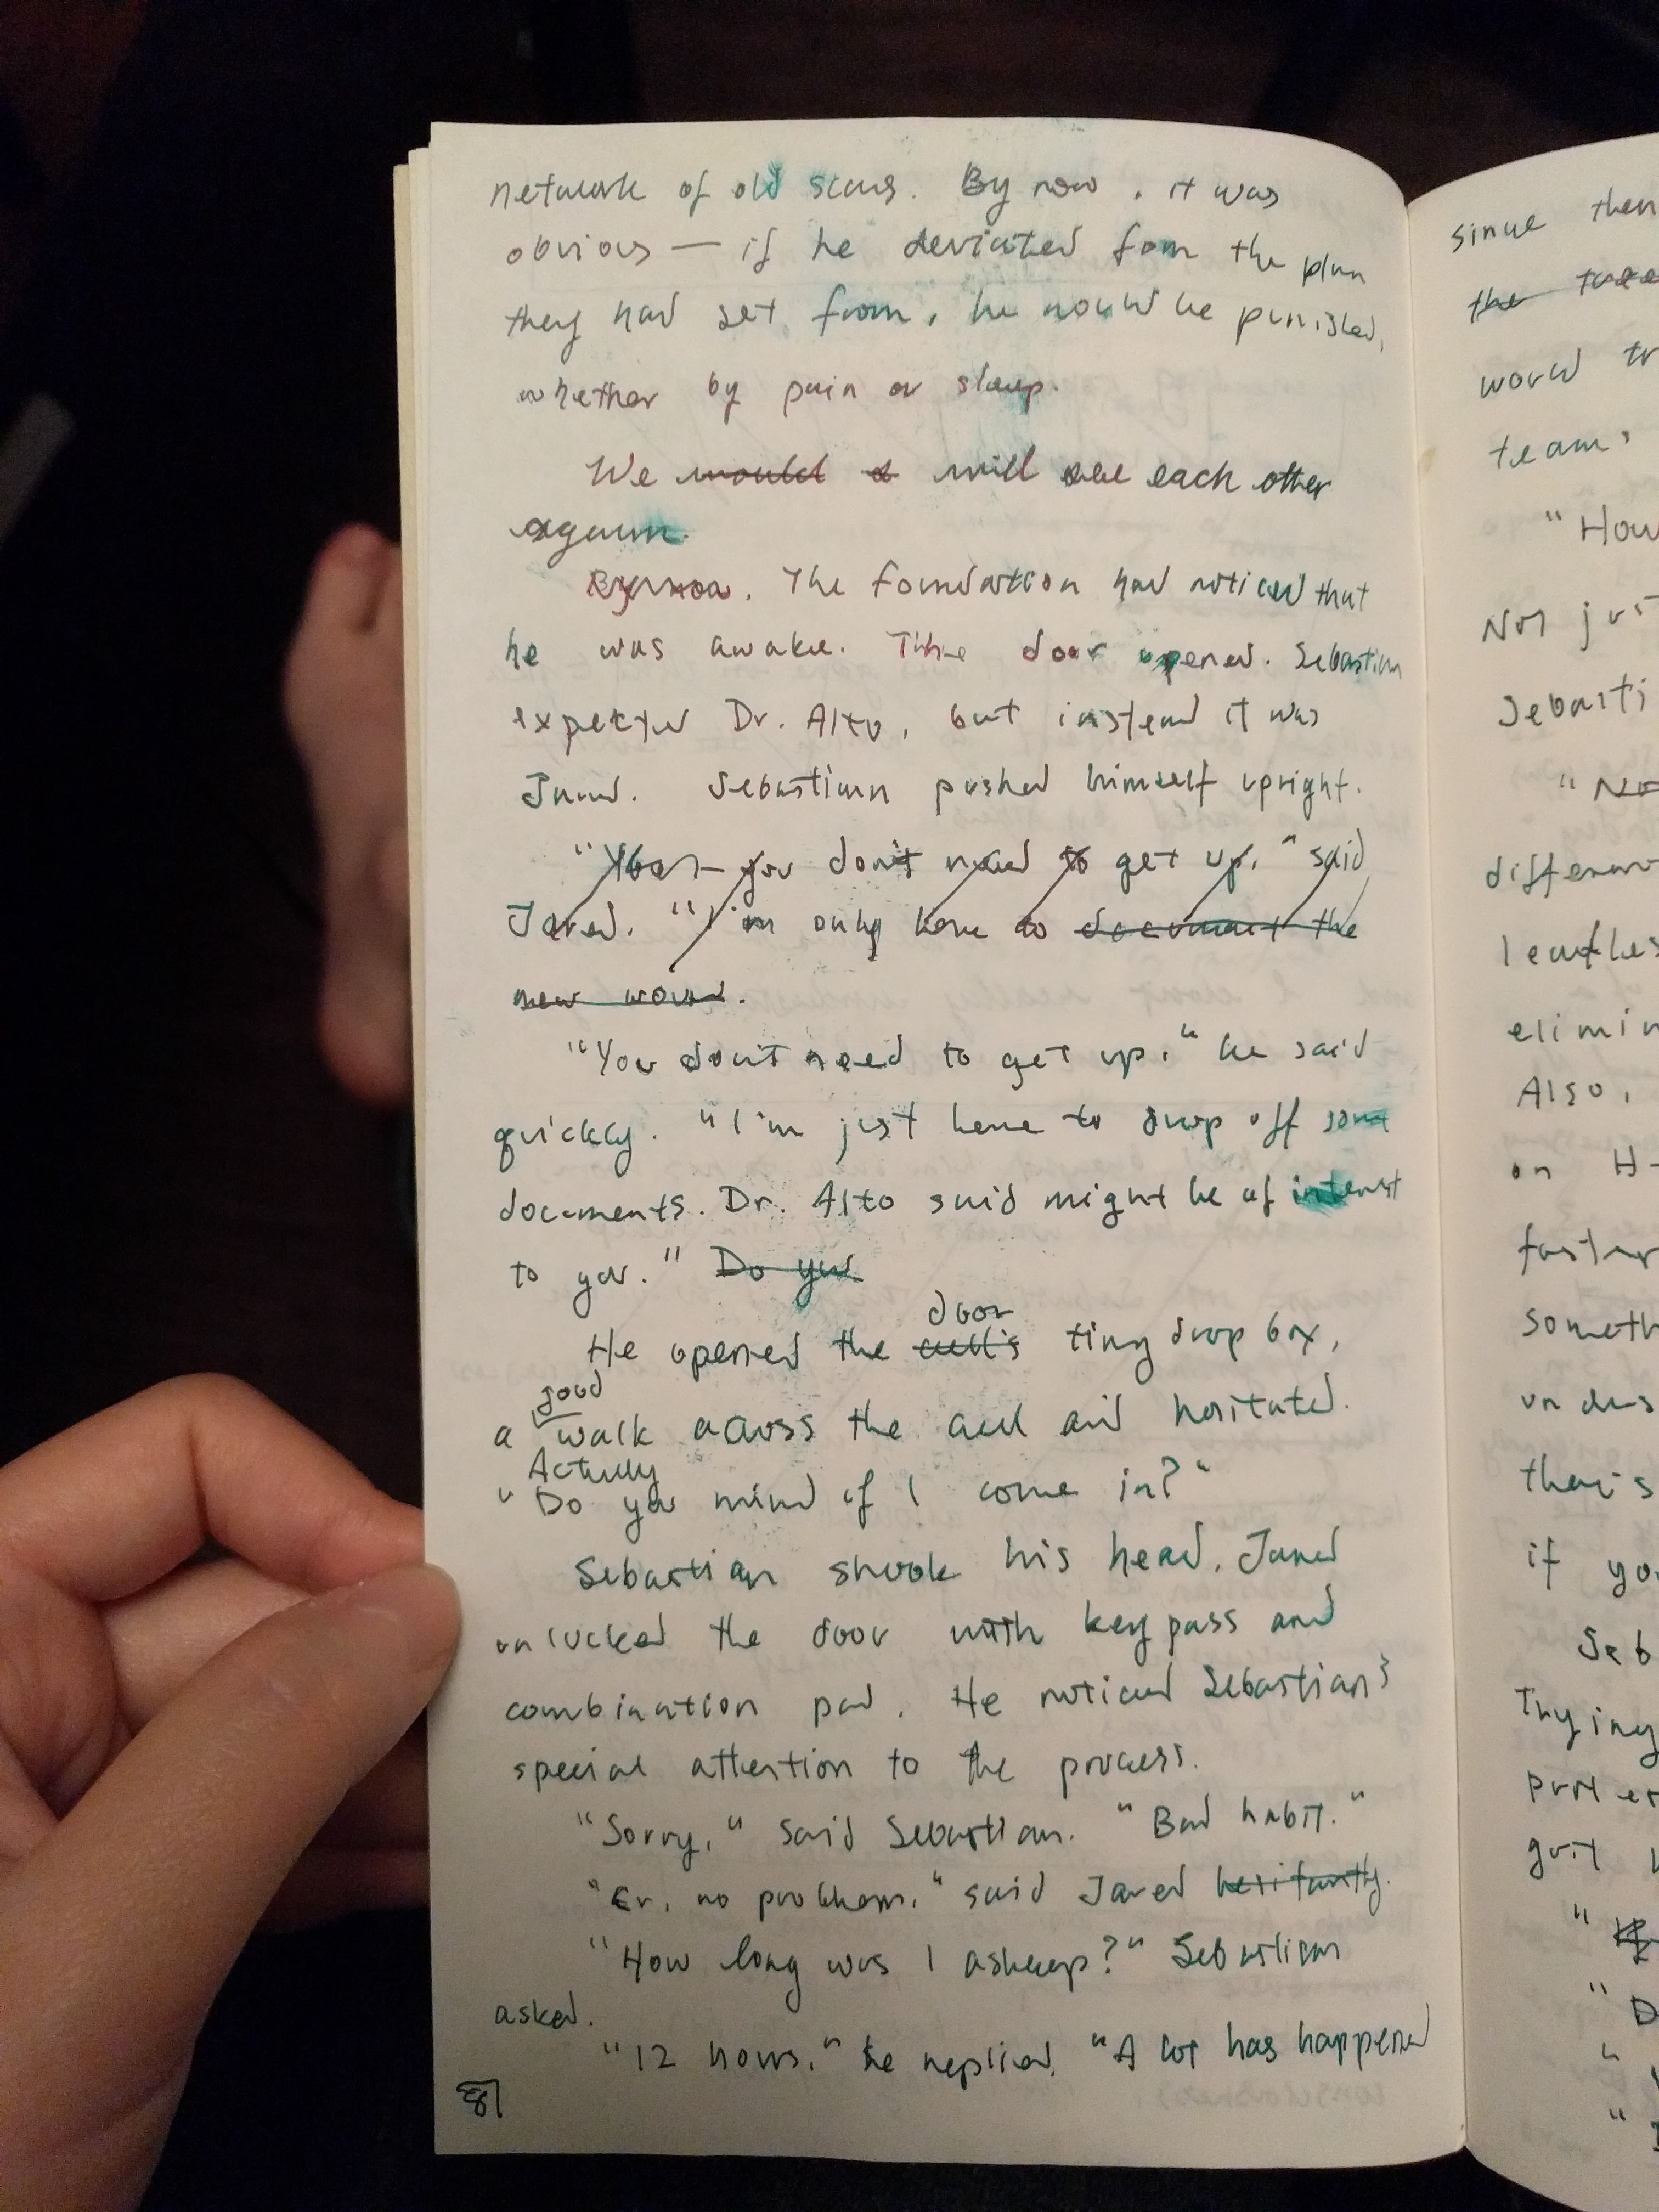 network of old scars. By now, it was
obvious — if he deviated from the plan
they had set from, he would be punished,
whether by pain or sleep.
We would s will see each other
again.
The Foundation had noticed that
he was awake. The door opened. Sebastian
expected Dr. Alto, but instead it was
Jared. Sebastian pushed himself upright.
you don't need to get up," said
Jared. "I'm only here to document the
new wound.
"You don't need to get up," he said
quickly. "I'm just here to drop off some
documents. Dr. Alto said might be of interest
to you." Do you
door
He opened the cell's tiny drop box,
good
a walk across the cell and hesitated.
Actually
"Do you mind if I come in?"
Sebastian shook his head. Jared
unlocked the door with key pass and
combination pad. He noticed Sebastian's
special attention to the process.
"Sorry," said Sebastian. "Bad habit."
"Er, no problem," said Jared hesitantly.
"How long was I asleep?" Sebastian
asked.
"12 hours," he replied. "A lot has happened
81
since then
the
world tr
team,
"How
Not just
Sebasti
"No
differen
leadles
elimin
Also,
on H-
faster
someth
unders
that's
if yo
Seb
Trying
"D